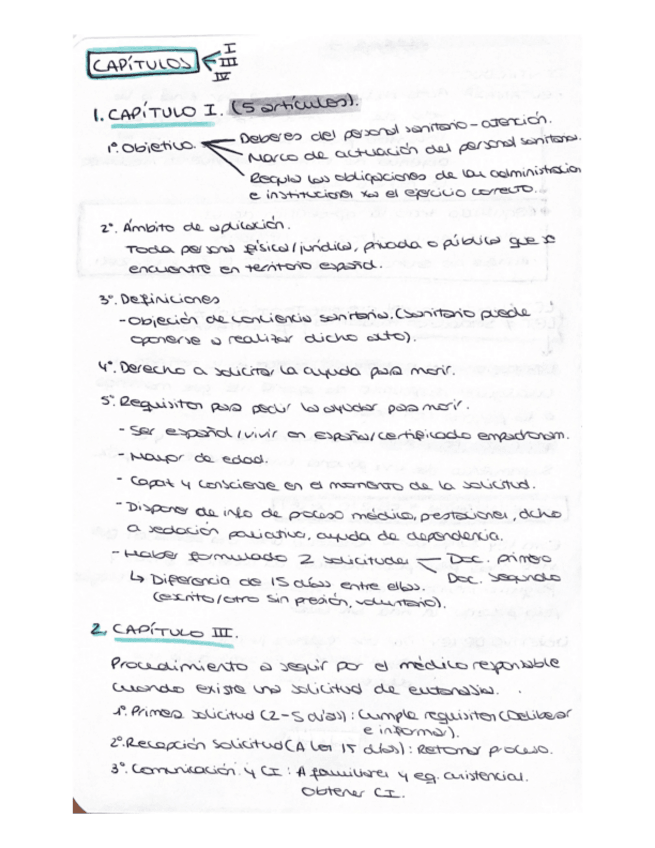 CAPÍTULOS I
III
IV
1. CAPÍTULO I. (5 artículos).
1º. Objetivo. Deberes del personal sanitario - atención.
Marco de actuación del personal sanitario.
Regula las obligaciones de las administracion
e instituciones xa el ejercicio correcto..
2º. Ámbito de aplicación.
Toda persona física/jurídica, privada o pública que se
encuentre en territorio español.
3º. Definiciones
- Objeción de conciencia sanitaria. (Sanitario puede
oponerse a realizar dicho acto).
4º. Derecho a solicitar la ayuda para morir.
5º. Requisitos para pedir la ayuda para morir.
- Ser español/vivir en España/certificado empadronam.
- Mayor de edad.
- Capaz y consciente en el momento de la solicitud.
- Disponer de info de proceso médico, prestaciones, dcho
a sedación paliativa, ayuda de dependencia.
- Haber formulado 2 solicitudes Doc. primero
Doc. segundo
↳ Diferencia de 15 días entre ellas.
(escrito/otro sin presión, voluntario).
2. CAPÍTULO III.
Procedimiento a seguir por el médico responsable
cuando existe una solicitud de eutanasia.
1º. Primera solicitud (2-5 días): Cumple requisitos (Deliberar
e informar).
2º. Recepción Solicitud (A los 15 días): Retomar proceso.
3º. Comunicación y CI: A familiares y eq. asistencial.
Obtener CI.